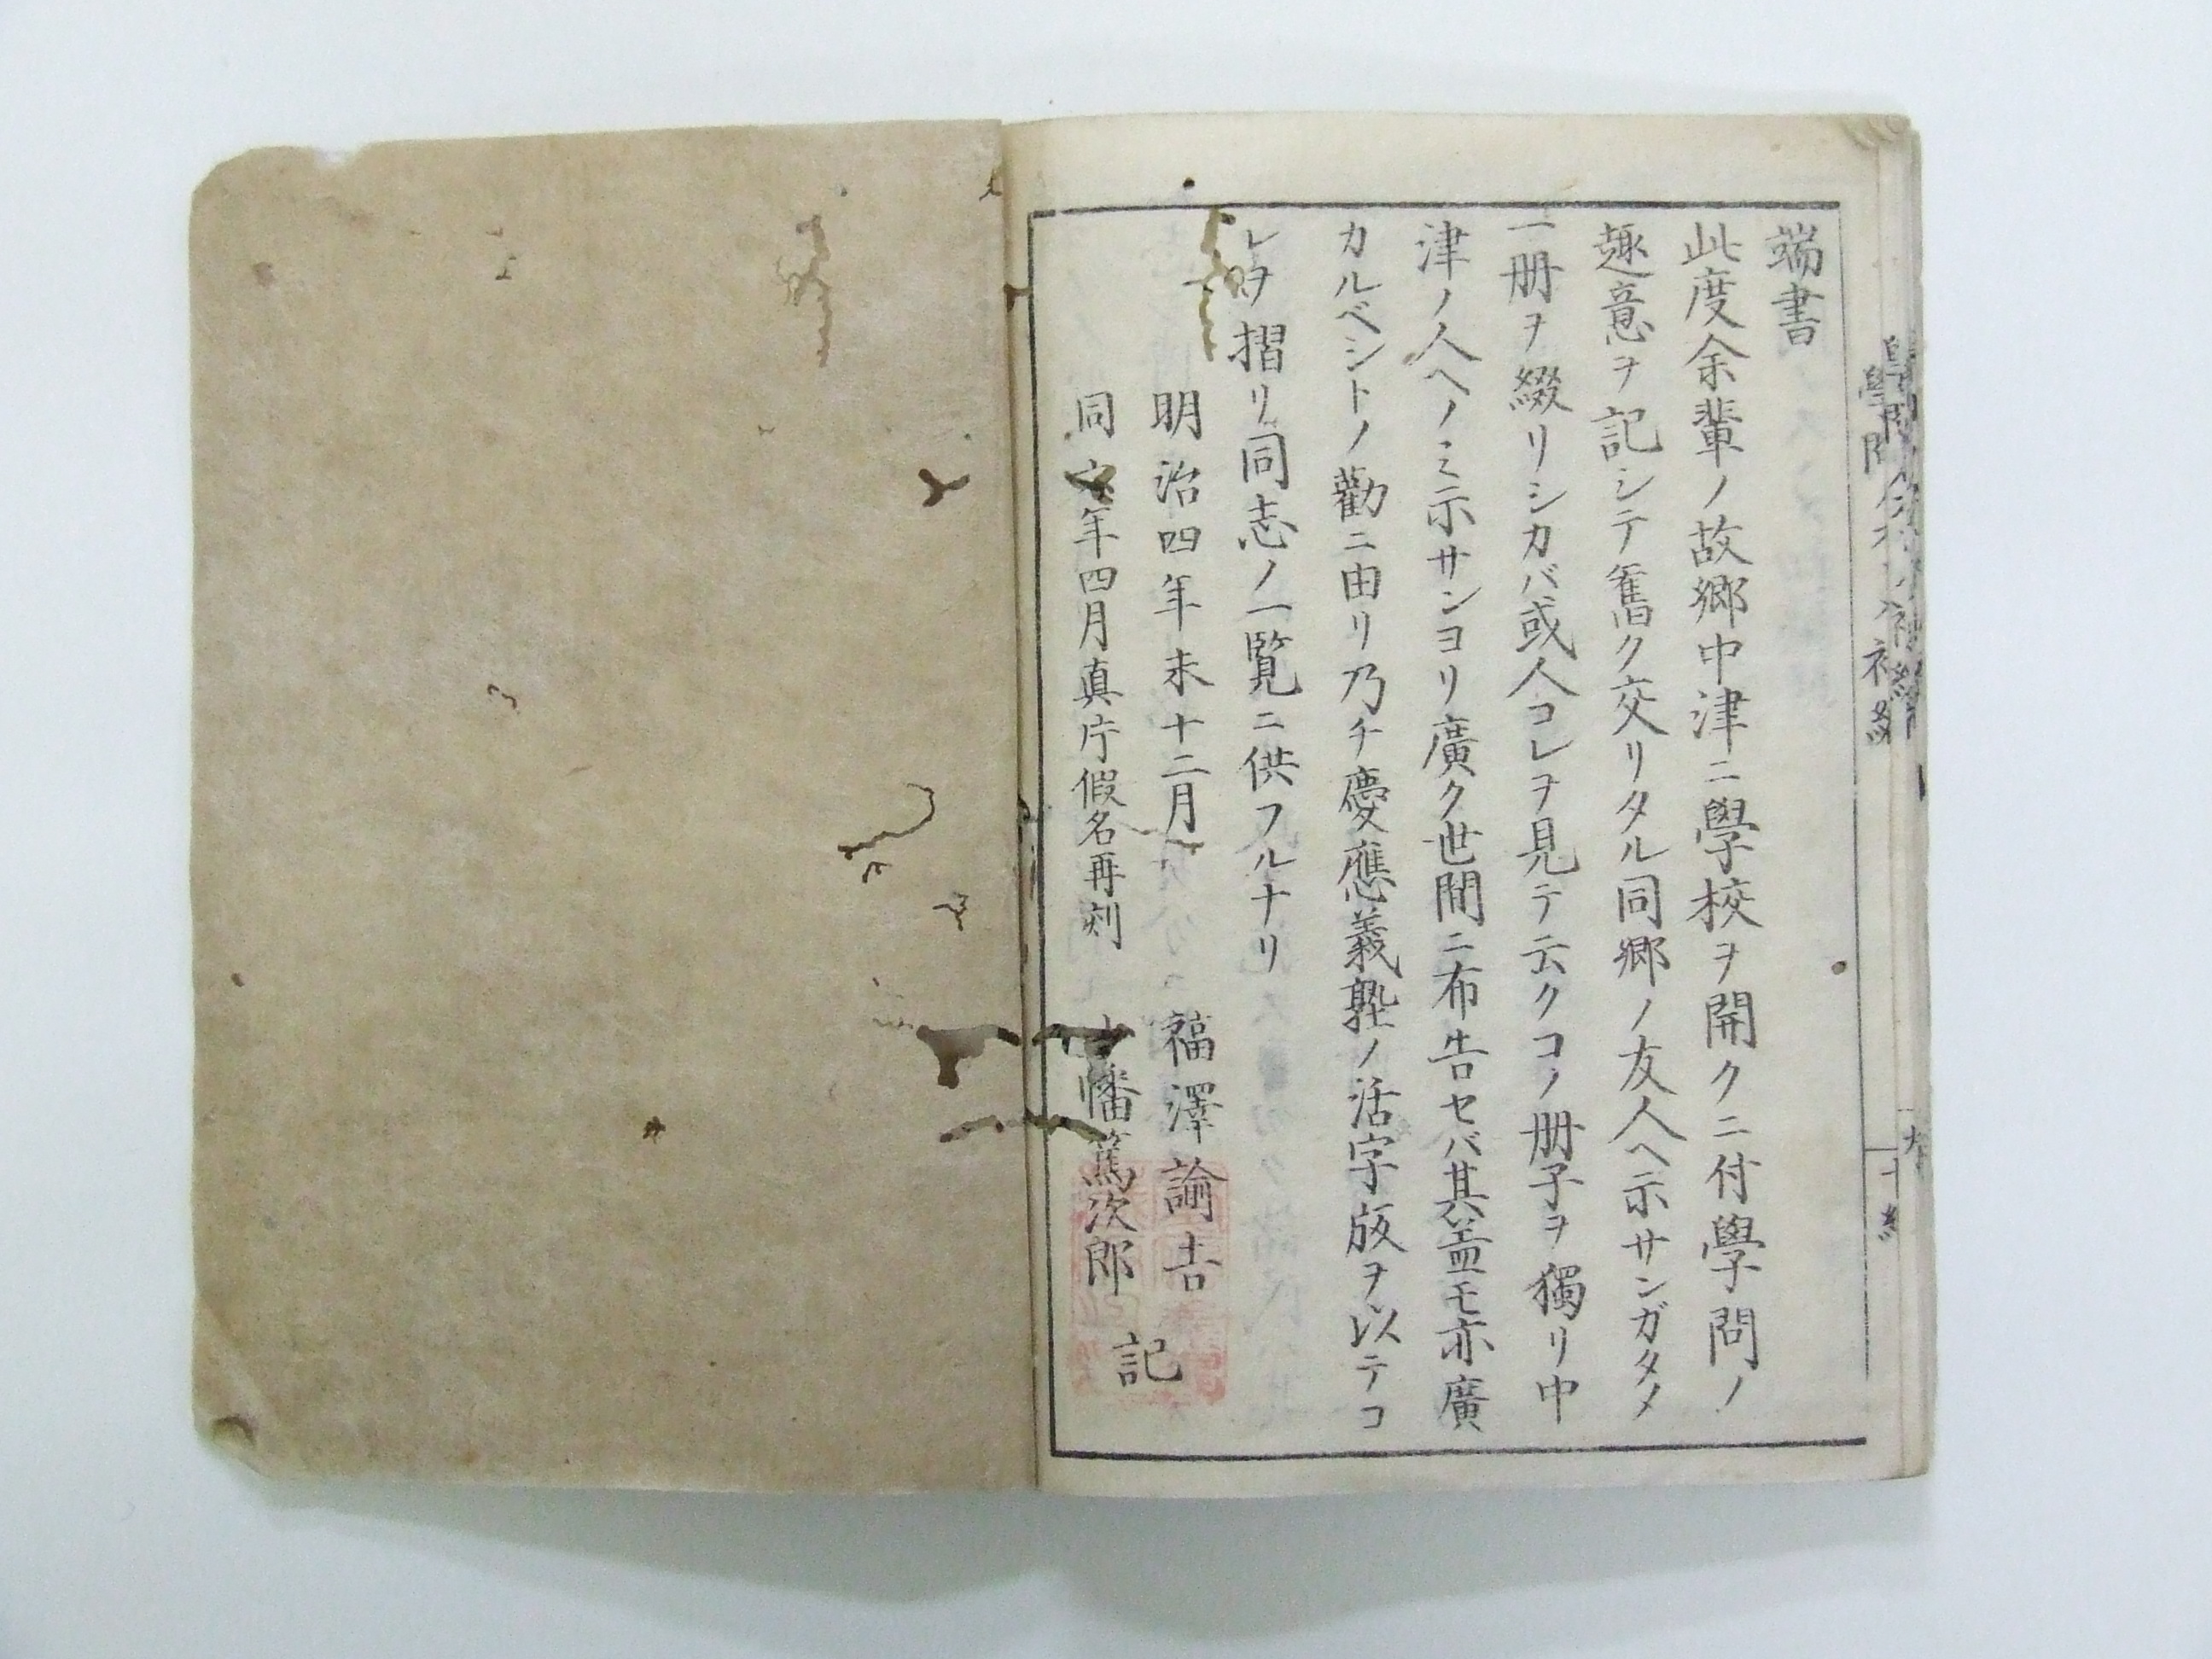 端書
此度余輩ノ故郷中津ニ學校ヲ開クニ付學問ノ
趣意ヲ記シテ舊ク交リタル同郷ノ友人ヘ示サンガタメ
一册ヲ綴リシカバ或人コレヲ見テ云クコノ册子ヲ獨リ中
津ノ人ヘノミ示サンヨリ廣ク世間ニ布告セバ其益モ亦廣
カルベシトノ勸ニ由リ乃チ慶應義塾ノ活字版ヲ以テコ
レヲ摺リ同志ノ一覧ニ供フルナリ
明治四年未十二月 福澤諭吉
同 年四月真片假名再刻 幡篤次郎
記